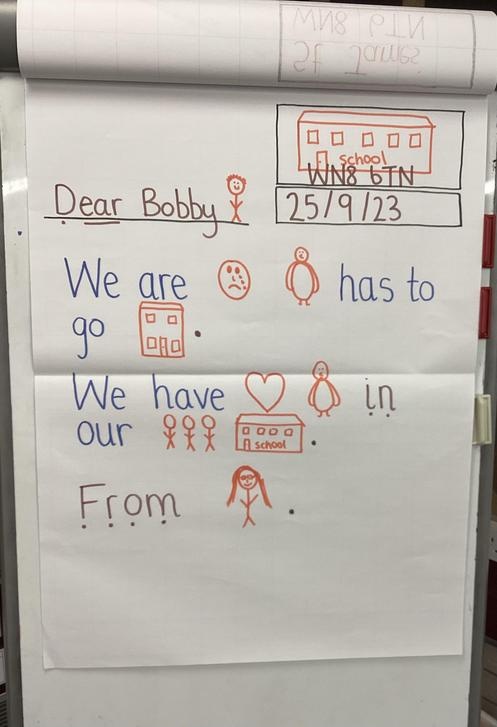 St James
WN8 6TN
school
WN8 6TN
Dear Bobby
25/9/23
We are has to
go .
We have in
our school .
From .